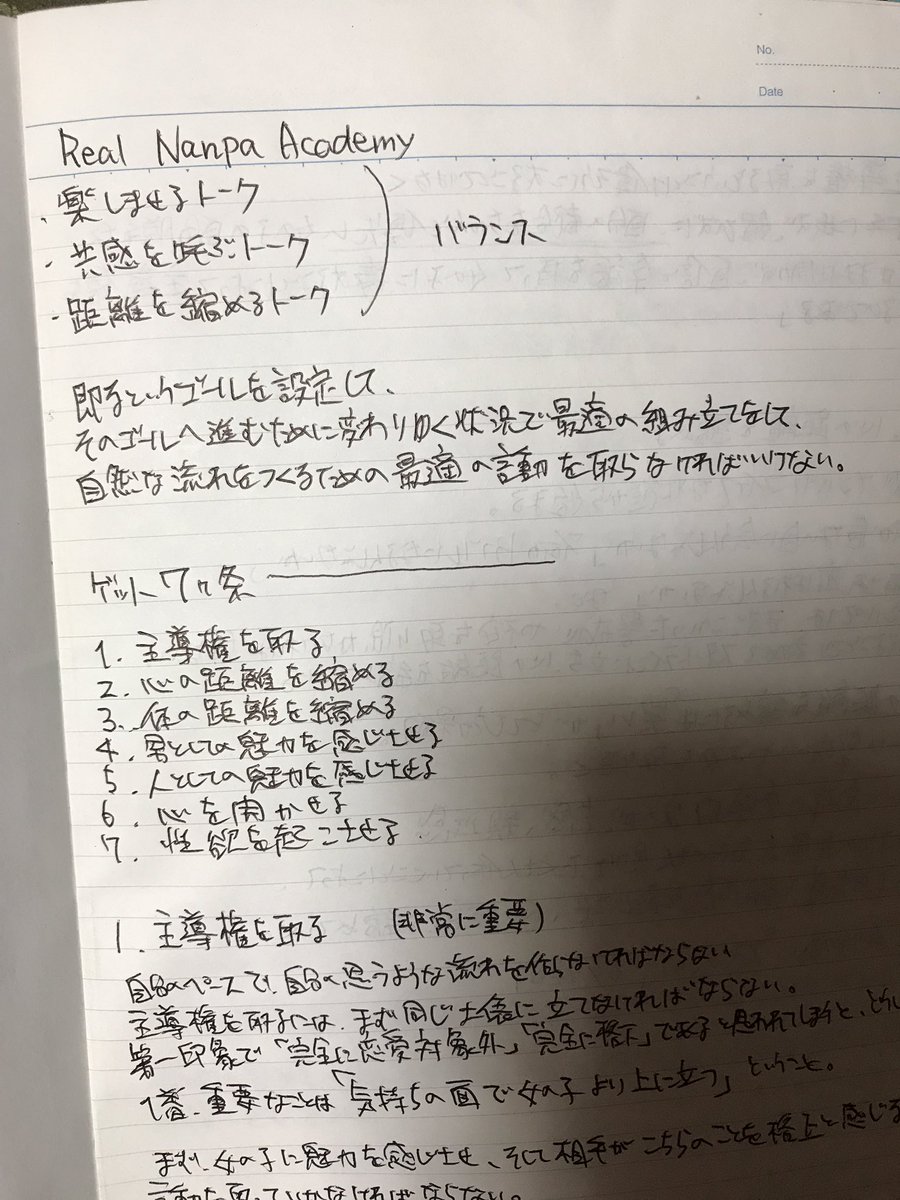 No.
Date
Real Nanpa Academy
・楽しませるトーク
・共感を呼ぶトーク
・距離を縮めるトーク
バランス
即るというゴールを設定して、
そのゴールへ進むために変わりゆく状況で最適の組み立てをして、
自然な流れをつくるための最適の言動を取らなければいけない。
ゲット7ヶ条
1. 主導権を取る
2. 心の距離を縮める
3. 体の距離を縮める
4. 男としての魅力を感じさせる
5. 人としての魅力を感じさせる
6. 心を開かせる
7. 性欲を起こさせる
1. 主導権を取る (非常に重要)
自分のペースで、自分の思うような流れを作らなければならない
主導権を取るには、まず同じ土俵に立てなければならない。
第一印象で「完全に恋愛対象外」「完全に格下」であると思われてしまうと、
1番、重要なことは「気持ちの面で女の子より上に立つ」ということ。
まず、女の子に魅力を感じさせ、そして相手がこちらのことを格上と感じる
言動を取っていかなければならない。